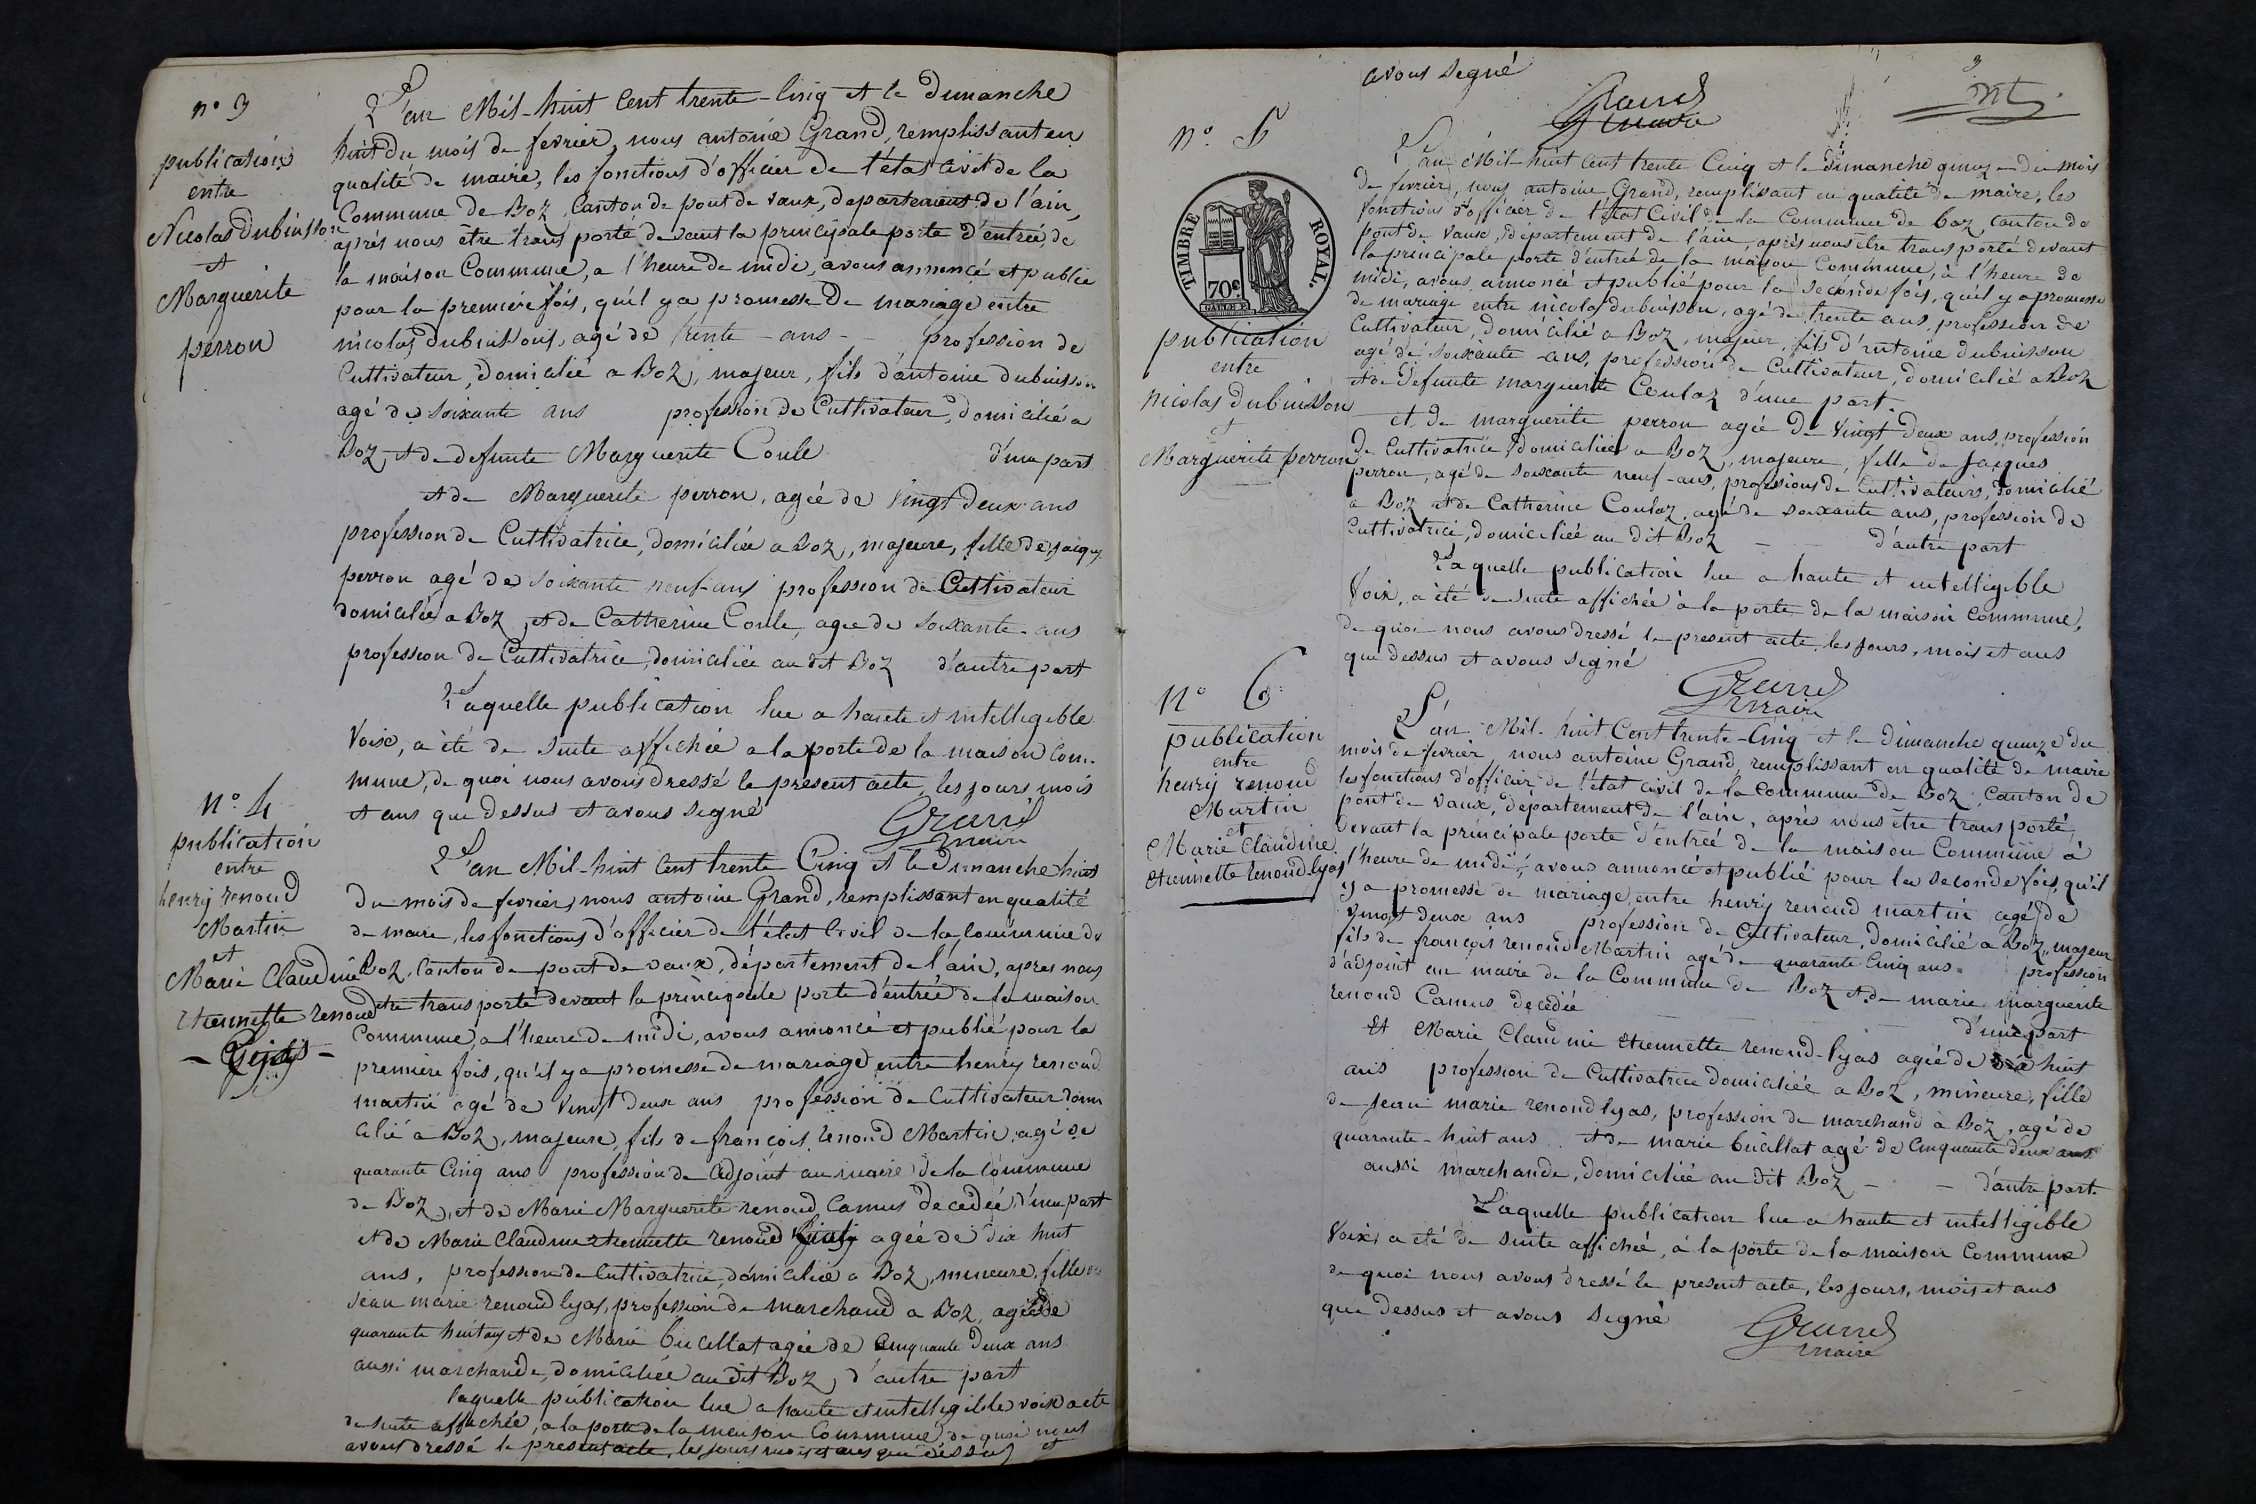 n° 3
publication
entre
Nicolas Dubuisson
et
Marguerite
perron
L'an Mil-huit Cent trente-Cinq et le Dimanche
huit du mois de fevrier, nous antoine Grand, remplissant en
qualité de maire, les fonctions d'officier de l'état Civil de la
Commune de Boz, Canton de pont de vaux, departement de l'ain,
aprés nous être trans porté devant la principale porte d'entrée, de
la maison Commune, a l'heure de midi, avons annoncé et publié
pour la premiére fois, qu'il y a promesse de mariage entre
nicolas Dubuisson, agé de trente - ans - profession de
Cultivateur, domicilié a Boz, majeur, fils d'antoine dubuisson
agé de soixante ans profession de Cultivateur, domicilié a
Boz, et de defunte Marguerite Conle d'une part
et de Marguerite perron, agée de vingt deux ans
profession de Cultivatrice, domiciliée a Boz, majeure, fille de Jacques
perron agé de soixante neuf-ans profession de Cultivateur
domicilié a Boz, et de Catherine Conle, agée de soixante-ans
profession de Cultivatrice, domiciliée au dit Boz d'autre part
Laquelle publication lue a haute et intelligible
voix, a été de suite affichée a la porte de la maison Com-
mune, de quoi nous avons dressé le present acte, les jours mois
et ans que dessus et avons signé
Grand
maire
N° 4
publication
entre
henry renoud
Martin
et
Marie Claudine
etiennette renoud
L'an Mil-huit Cent trente Cinq et le Dimanche huit
du mois de fevrier, nous antoine Grand, remplissant en qualité
de maire, les fonctions d'officier de l'état Civil de la Commune de
Boz, Canton de pont de vaux, département de l'ain, apres nous
etre trans porté devant la principale porte d'entrée de la maison
Commune, a l'heure de midi, avons annoncé et publié pour la
premiere fois, qu'il y a promesse de mariage entre henry renoud
martin agé de vingt deux ans profession de Cultivateur domi
cilié à Boz, majeure, fils de françois renoud Martin, agé de
quarante Cinq ans profession de adjoint au maire de la commune
de Boz, et de Marie Marguerite renoud Camus decedeé, d'une part
et de Marie Claudine etiennette renoud agée de dix huit
ans, profession de Cultivatrice, domiciliée a Boz, mineure, fille de
Jean marie renoud lyas, profession de marchand a Boz, agé de
quarante huit ans et de Marie bucillat agée de Cinquante deux ans
aussi marchande, domiciliée au dit Boz, d'autre part
laquelle publication lue a haute et intelligible voix a eté
de suite affichée, a la porte de la maison Commune de quoi nous
avons dressé le present acte, les jours mois et ans que dessus et
avons signé
Grand
maire
3
N° 5
TIMBRE ROYAL.
70c
publication
entre
nicolas dubuisson
et
Marguerite perron
L'an Mil-huit Cent trente Cinq et le Dimanche quinze du mois
de fevrier, nous antoine Grand, remplissant en qualité de maire, les
fonctions d'officier de l'état Civil de la Commune de boz canton de
pont de vaux, département de l'ain, aprés nous etre trans porté devant
la principale porte d'entrée de la maison Commune, à l'heure de
midi, avons annoncé et publié pour la seconde fois, qu'il y a promesse
de mariage entre nicolas dubuisson, agé de trente ans, profession de
Cultivateur, domicilié a Boz, majeur, fils d'antoine dubuisson
agé de soixante -ans, profession de Cultivateur, domicilié a Boz
et de Defunte marguerite Conloz d'une part.
et de marguerite perron agée de vingt deux ans, profession
de Cultivatrice domiciliée a Boz, majeure, fille de Jacques
perron, agé de soixante neuf-ans, profession de Cultivateur, domicilié
a Boz et de Catherine Conloz, agé de soixante ans, profession de
Cultivatrice, domiciliée au dit Boz - - d'autre part
Laquelle publication lue a haute et intelligible
voix, a été de suite affichée à la porte de la maison Commune,
de quoi nous avons dressé le present acte, les jours, mois et ans
que dessus et avons signé
Grand
maire
N° 6
publication
entre
henry renoud
Martin
et
Marie Claudine
etiennette renoud lyas
L'an Mil-huit Cent trente-Cinq et le Dimanche quinze du
mois de fevrier nous antoine Grand remplissant en qualité de maire
les fonctions d'officier de l'état civil de la Commune de Boz, Canton de
pont de vaux, departement de l'ain, aprés nous être trans porté,
devant la principale porte d'entrée de la maison Commune à
l'heure de midi, avons annoncé et publié pour la seconde fois, qu'il
y a promesse de mariage, entre henry renoud martin agé de
vingt deux ans profession de Cultivateur, domicilié a Boz, majeur
fils de françois renoud Martin agé de quarante Cinq ans profession
d'adjoint au maire de la Commune de Boz et de marie marguerite
renoud Camus decedée d'une part
Et Marie Claudine etiennette renoud-lyas agée de dix huit
ans profession de Cultivatrice domiciliée a Boz, mineure, fille
de Jean marie renoud lyas, profession de marchand à Boz, agé de
quarante-huit ans et de marie bucillat agé de Cinquante deux ans
aussi marchande, domiciliée au dit Boz - - d'autre part.
Laquelle publication lue a haute et intelligible
voix, a eté de suite affichée, à la porte de la maison Commune
de quoi nous avons dressé le present acte, les jours, mois et ans
que dessus et avons signé
Grand
maire